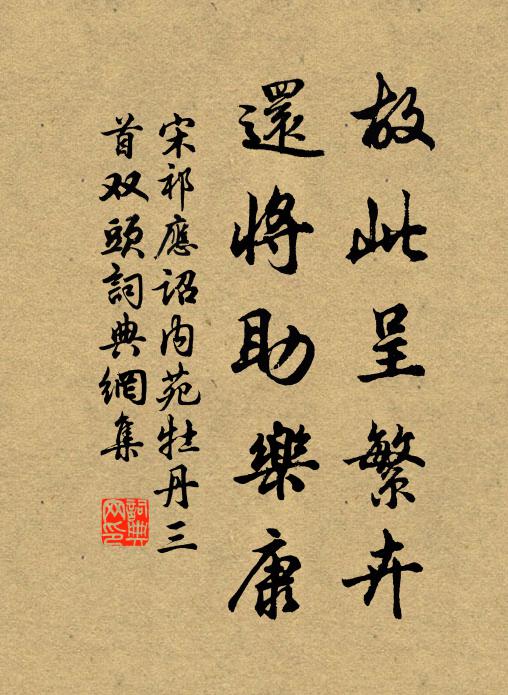 故此呈繁卉
還將助樂康
宋祁應詔内苑牡丹三
首双頭詞典網集
詞典
网印